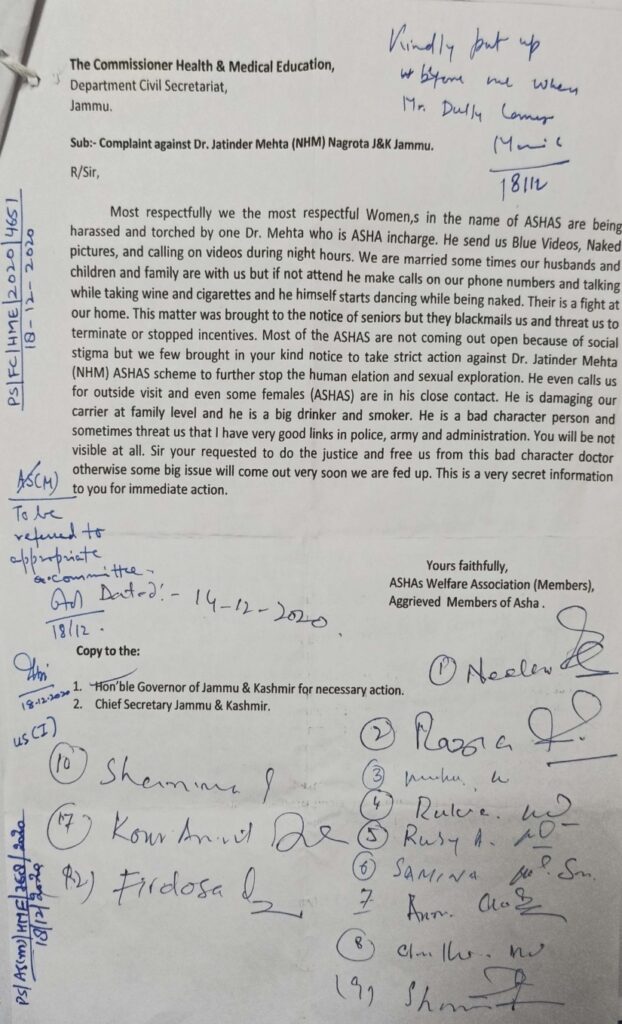 Kindly put up
before me when
Mr. Dully comes
18/12
The Commissioner Health & Medical Education,
Department Civil Secretariat,
Jammu.
Sub:- Complaint against Dr. Jatinder Mehta (NHM) Nagrota J&K Jammu.
R/Sir,
Most respectfully we the most respectful Women,s in the name of ASHAS are being
harassed and torched by one Dr. Mehta who is ASHA incharge. He send us Blue Videos, Naked
pictures, and calling on videos during night hours. We are married some times our husbands and
children and family are with us but if not attend he make calls on our phone numbers and talking
while taking wine and cigarettes and he himself starts dancing while being naked. Their is a fight at
our home. This matter was brought to the notice of seniors but they blackmails us and threat us to
terminate or stopped incentives. Most of the ASHAS are not coming out open because of social
stigma but we few brought in your kind notice to take strict action against Dr. Jatinder Mehta
(NHM) ASHAS scheme to further stop the human elation and sexual exploration. He even calls us
for outside visit and even some females (ASHAS) are in his close contact. He is damaging our
carrier at family level and he is a big drinker and smoker. He is a bad character person and
sometimes threat us that I have very good links in police, army and administration. You will be not
visible at all. Sir your requested to do the justice and free us from this bad character doctor
otherwise some big issue will come out very soon we are fed up. This is a very secret information
to you for immediate action.
PS/FC/HME/2020/4651
18-12-2020
AS(M)
To be
referred to
appropriate
committee.
18/12.
Dated:- 14-12-2020.
Yours faithfully,
ASHAs Welfare Association (Members),
Aggrieved Members of Asha .
Copy to the:
1. Hon'ble Governor of Jammu & Kashmir for necessary action.
2. Chief Secretary Jammu & Kashmir.
18-12-2020
US(I)
PS/AS(M)/HME/268/2020
18/12/2020
1
2 Razia
3
4
5 Ruby A.
6 SAMINA
7
8
(9)
10 Shamima
12) Firdosa